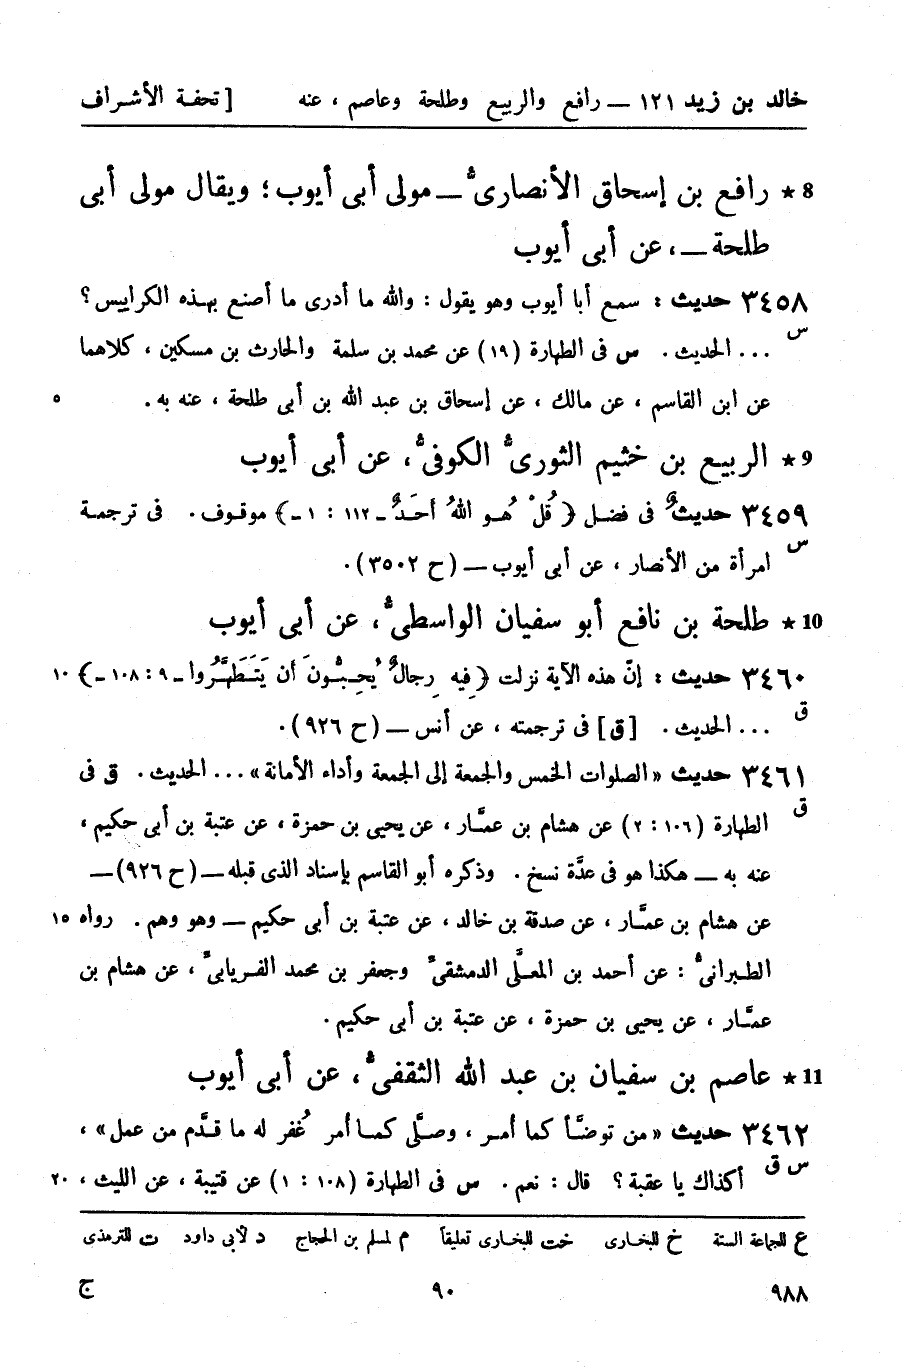 خالد بن زيد ١٢١ — رافع والربيع وطلحة وعاصم ، عنه [ تحفة الأشراف
8 ★ رافع بن إسحاق الأنصارىّ — مولى أبى أيوب؛ ويقال مولى أبى
طلحة — ، عن أبى أيوب
٣٤٥٨ حديث : سمع أبا أيوب وهو يقول : والله ما أدرى ما أصنع بهذه الكراييس؟
س ... الحديث . س فى الطهارة (١٩) عن محمد بن سلمة والحارث بن مسكين ، كلاهما
عن ابن القاسم ، عن مالك ، عن إسحاق بن عبد الله بن أبى طلحة ، عنه به . ٥
9 ★ الربيع بن خثيم الثورىّ الكوفىّ، عن أبى أيوب
٣٤٥٩ حديثٌ فى فضل ﴿ قُلْ هُو اللهُ أحَدٌ ـ ١١٢ : ١ ـ ﴾ موقوف . فى ترجمة
س امرأة من الأنصار ، عن أبى أيوب — (ح ٣٥٠٢) .
10 ★ طلحة بن نافع أبو سفيان الواسطىّ، عن أبى أيوب
٣٤٦٠ حديث : إنّ هذه الآية نزلت ﴿ فِيه رِجالٌ يُحِبُّونَ أن يَتَطَهَّرُوا ـ ٩ : ١٠٨ ـ ﴾ ١٠
ق ... الحديث . [ق] فى ترجمته ، عن أنس — (ح ٩٢٦) .
٣٤٦١ حديث «الصلوات الخمس والجمعة إلى الجمعة وأداء الأمانة» ... الحديث . ق فى
ق الطهارة (١٠٦ : ٢) عن هشام بن عمَّار ، عن يحيى بن حمزة ، عن عتبة بن أبى حكيم ،
عنه به — هكذا هو فى عدَّة نسخ . وذكره أبو القاسم بإسناد الذى قبله — (ح ٩٢٦) —
عن هشام بن عمَّار ، عن صدقة بن خالد ، عن عتبة بن أبى حكيم — وهو وهم . رواه ١٥
الطبرانىّ : عن أحمد بن المعلَّى الدمشقىّ وجعفر بن محمد الفريابىّ ، عن هشام بن
عمَّار ، عن يحيى بن حمزة ، عن عتبة بن أبى حكيم .
11 ★ عاصم بن سفيان بن عبد الله الثقفىّ، عن أبى أيوب
٣٤٦٢ حديث «من توضَّأ كما أمر ، وصلَّى كما أمر غُفر له ما قدَّم من عمل» ،
س ق أكذاك يا عقبة؟ قال : نعم . س فى الطهارة (١٠٨ : ١) عن قتيبة ، عن الليث ، ٢٠
ع للجماعة الستة خ للبخارى خت للبخارى تعليقاً م لمسلم بن الحجاج د لأبى داود ت للترمذى
٩٨٨ ٩٠ ج